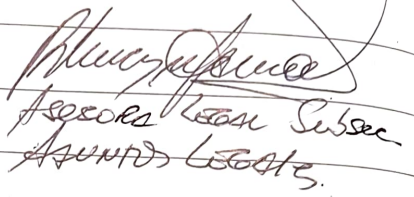 Asesora Legal Subsec
Asuntos Legales.